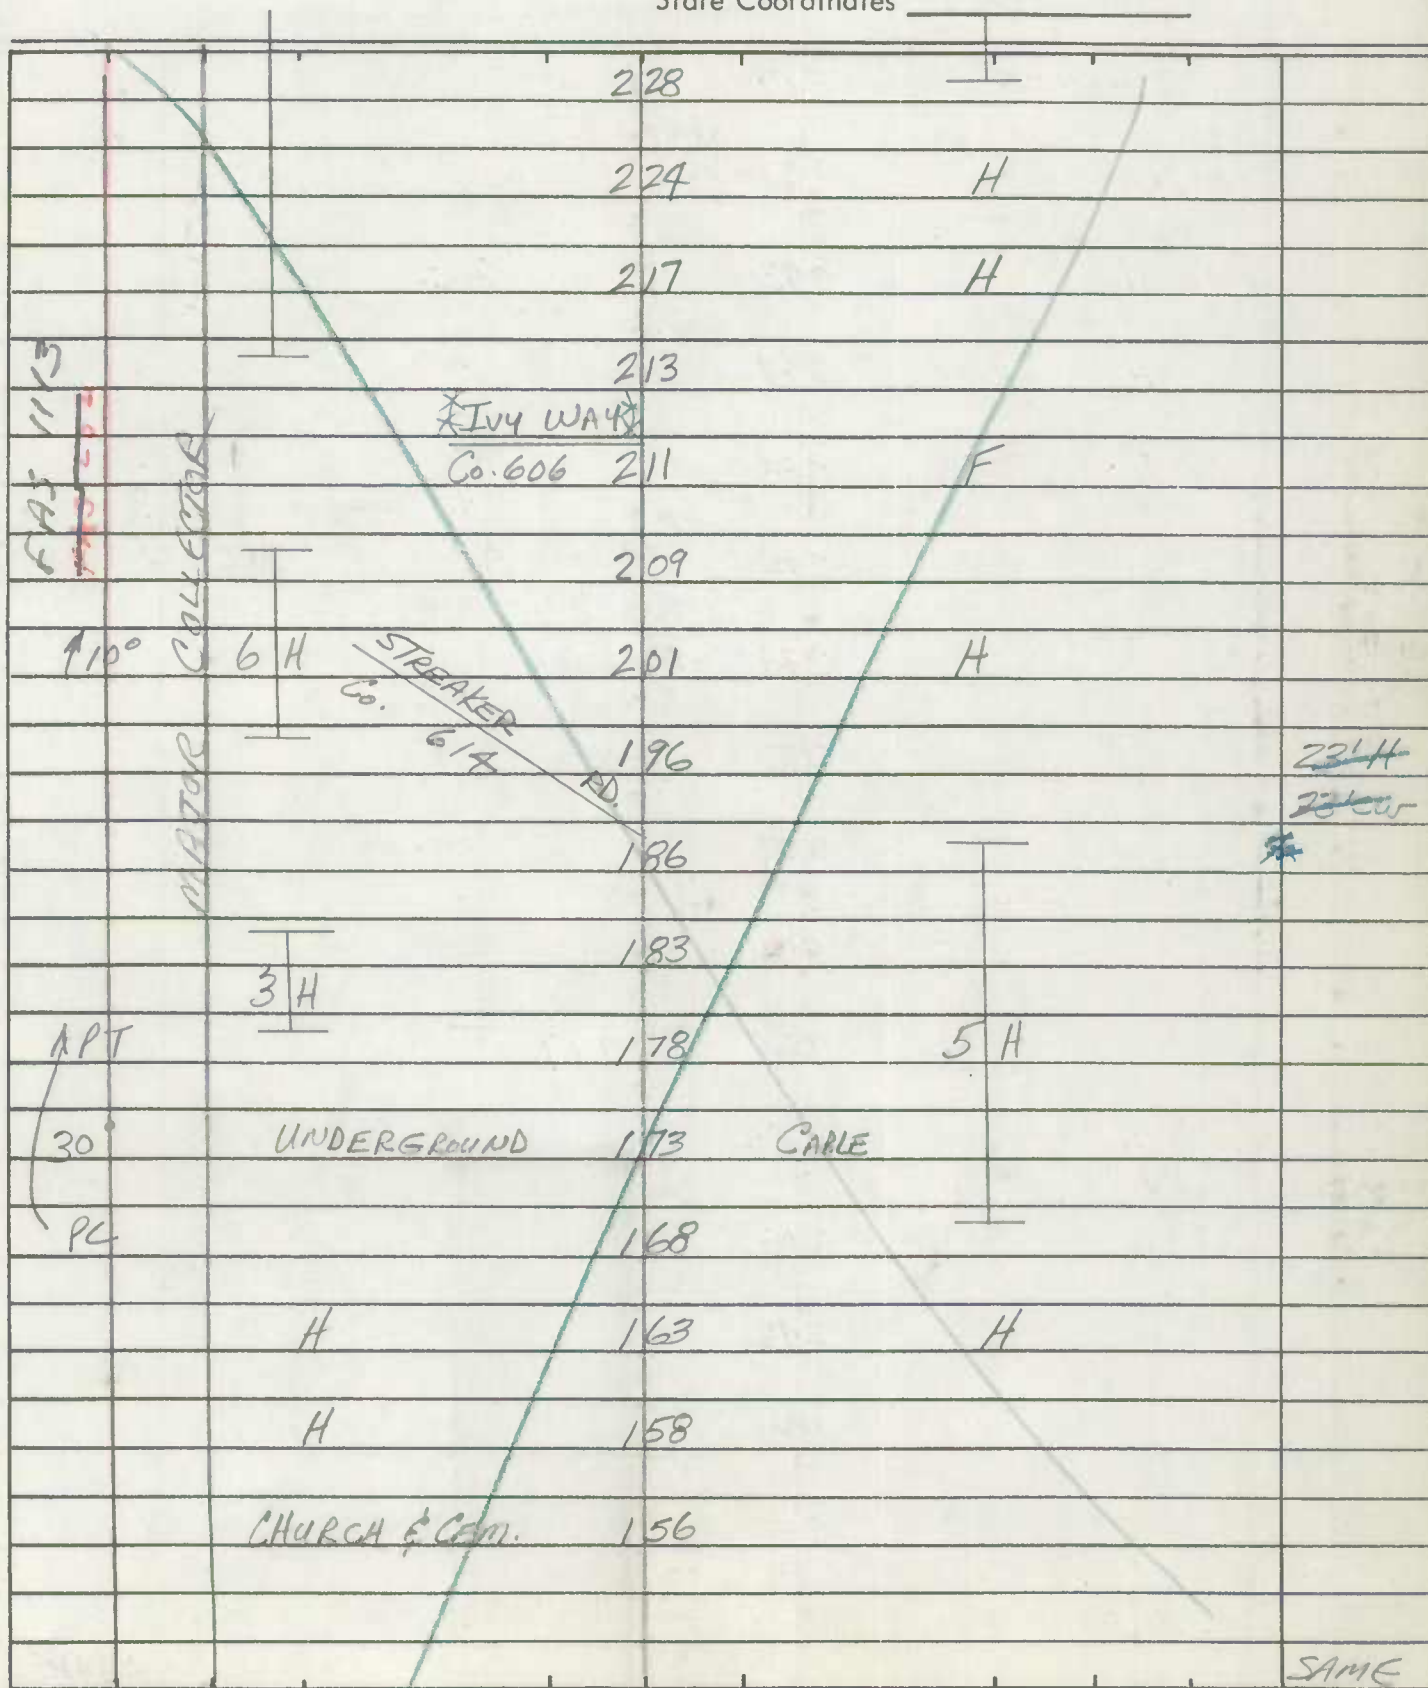 State Coordinates
228
224 H
217 H
213
*IVY WAY*
Co. 606 211 F
FAS 1113
209
COLLECTOR
↑10° 6 H 201 H
STREAKER RD.
Co. 614
196 23' H
MAJOR
186
183
3 H
PT 178 5 H
30 UNDERGROUND 173 CABLE
PC 168
H 163 H
H 158
CHURCH & CEM. 156
SAME